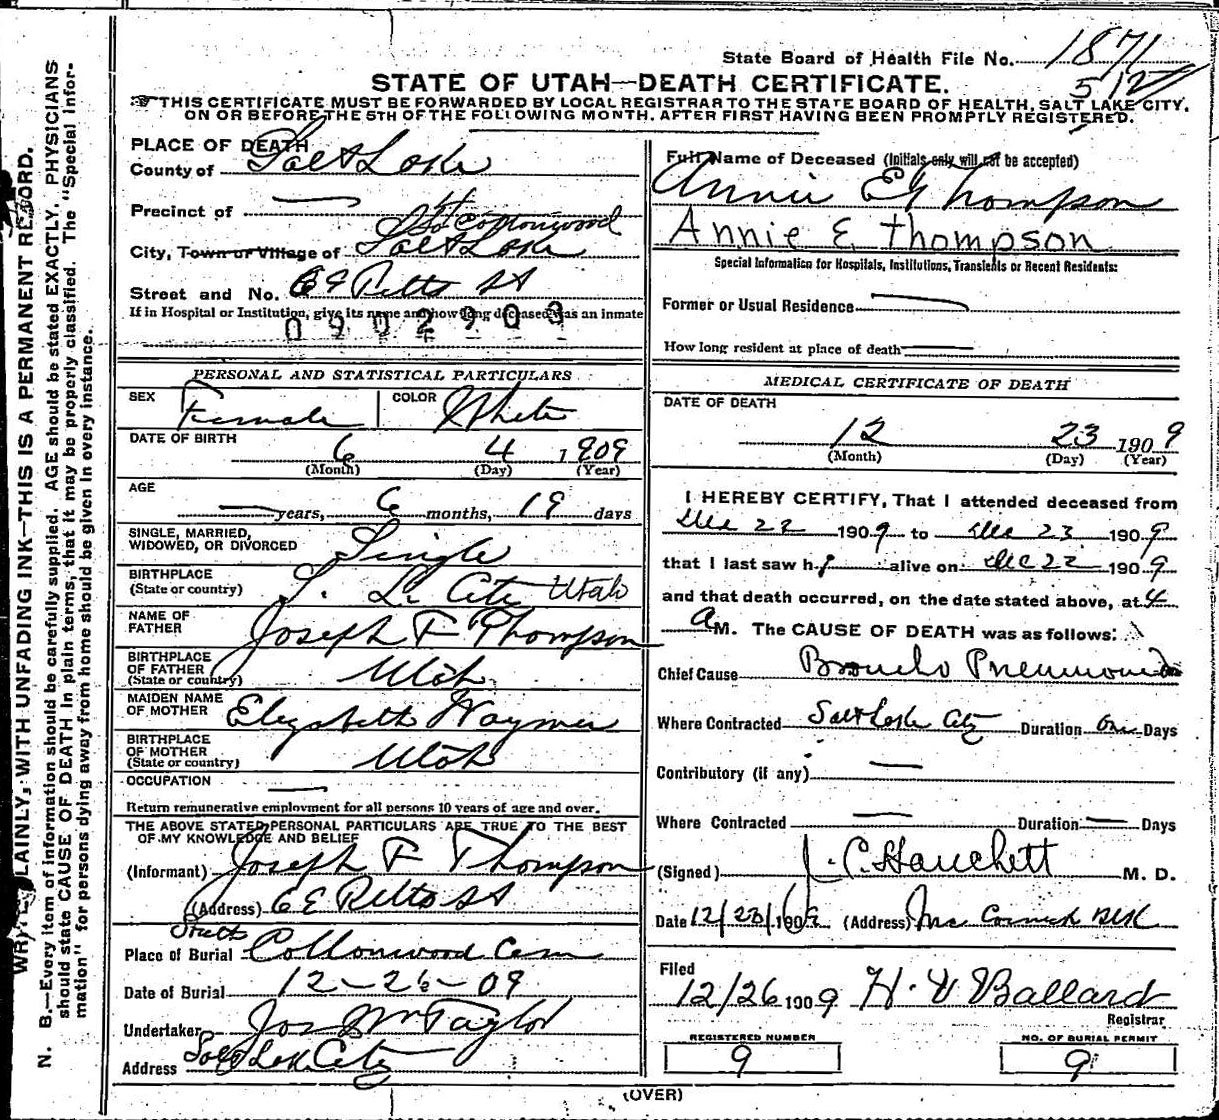 State Board of Health File No. 1871
512
STATE OF UTAH—DEATH CERTIFICATE.
THIS CERTIFICATE MUST BE FORWARDED BY LOCAL REGISTRAR TO THE STATE BOARD OF HEALTH, SALT LAKE CITY,
ON OR BEFORE THE 5TH OF THE FOLLOWING MONTH, AFTER FIRST HAVING BEEN PROMPTLY REGISTERED.
PLACE OF DEATH
County of Salt Lake
Precinct of —
So Cottonwood
City, Town or Village of Salt Lake
Street and No. St
If in Hospital or Institution, give its name and how long deceased was an inmate
0902903
PERSONAL AND STATISTICAL PARTICULARS
SEX Female COLOR White
DATE OF BIRTH 6 4 1909
(Month) (Day) (Year)
AGE
— years, 6 months, 19 days
SINGLE, MARRIED,
WIDOWED, OR DIVORCED Single
BIRTHPLACE
(State or country) S. L. City Utah
NAME OF
FATHER Joseph F Thompson
BIRTHPLACE
OF FATHER
(State or country) Utah
MAIDEN NAME
OF MOTHER Elizabeth Waymen
BIRTHPLACE
OF MOTHER
(State or country) Utah
OCCUPATION —
Return remunerative employment for all persons 10 years of age and over.
THE ABOVE STATED PERSONAL PARTICULARS ARE TRUE TO THE BEST
OF MY KNOWLEDGE AND BELIEF
(Informant) Joseph F Thompson
(Address) St
South
Place of Burial Cottonwood Cem
Date of Burial 12-26-09
Undertaker Jos Wm Taylor
Address Salt Lake City
Full Name of Deceased (Initials only will not be accepted)
Annie E Thompson
Annie E Thompson
Special Information for Hospitals, Institutions, Transients or Recent Residents:
Former or Usual Residence —
How long resident at place of death —
MEDICAL CERTIFICATE OF DEATH
DATE OF DEATH
12 23 1909
(Month) (Day) (Year)
I HEREBY CERTIFY, That I attended deceased from
Dec 22 1909 to Dec 23 1909
that I last saw h r alive on Dec 22 1909
and that death occurred, on the date stated above, at 4
a M. The CAUSE OF DEATH was as follows:
Chief Cause Broncho Pneumonia
Where Contracted Salt Lake City Duration one Days
Contributory (if any) —
Where Contracted — Duration — Days
(Signed) J. C. Hanchett M. D.
Date 12/23/1909 (Address) Mc Cornick Blk
Filed
12/26 1909 H. V Ballard
Registrar
REGISTERED NUMBER
9
NO. OF BURIAL PERMIT
9
(OVER)
WRITE PLAINLY, WITH UNFADING INK—THIS IS A PERMANENT RECORD.
N. B.—Every item of information should be carefully supplied. AGE should be stated EXACTLY. PHYSICIANS
should state CAUSE OF DEATH in plain terms, that it may be properly classified. The "Special Infor-
mation" for persons dying away from home should be given in every instance.